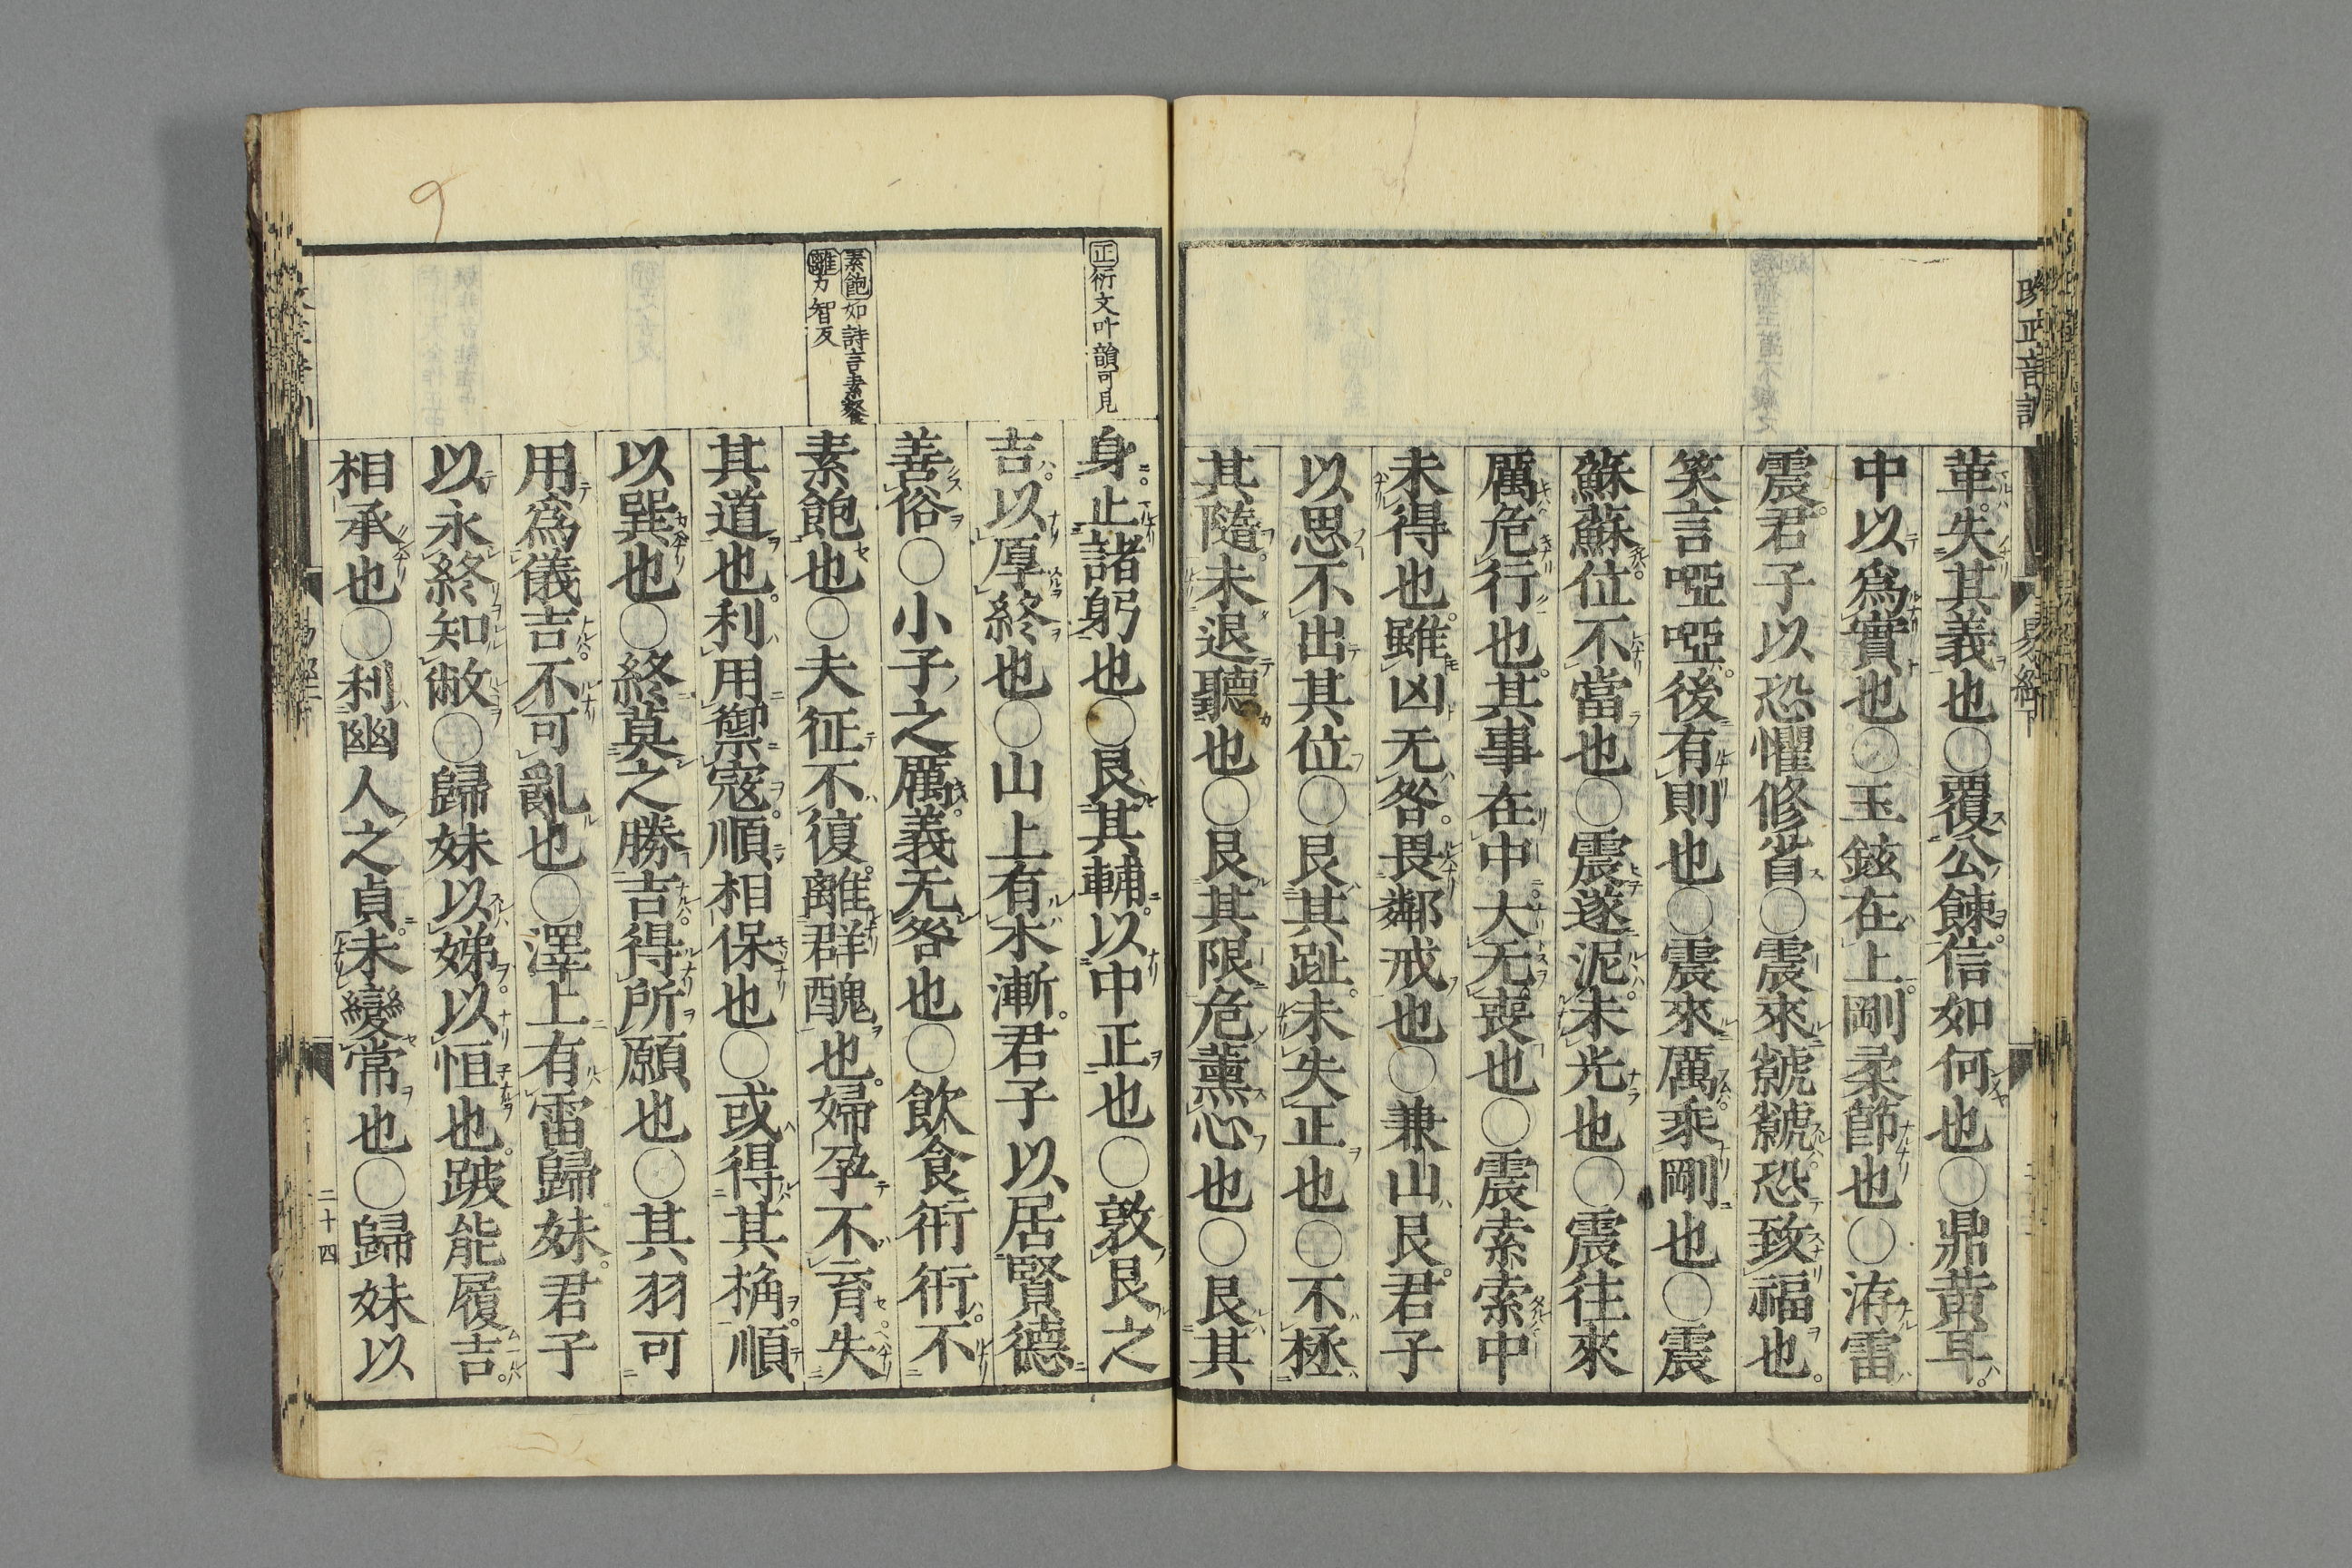 革失其義也○覆公餗信如何也○鼎黃耳
中以爲實也○玉鉉在上剛柔節也○洊雷
震君子以恐懼修省○震來虩虩恐致福也
笑言啞啞後有則也○震來厲乘剛也○震
蘇蘇位不當也○震遂泥未光也○震往來
厲危行也其事在中大无喪也○震索索中
未得也雖凶无咎畏鄰戒也○兼山艮君子
以思不出其位○艮其趾未失正也○不拯
其隨未退聽也○艮其限危薰心也○艮其
正衍文叶韻可見
身止諸躬也○艮其輔以中正也○敦艮之
吉以厚終也○山上有木漸君子以居賢德
善俗○小子之厲義无咎也○飲食衎衎不
素飽如詩言素餐
離力智反
素飽也○夫征不復離群醜也婦孕不育失
其道也利用禦寇順相保也○或得其桷順
以巽也○終莫之勝吉得所願也○其羽可
用爲儀吉不可亂也○澤上有雷歸妹君子
以永終知敝○歸妹以娣以恒也跛能履吉
相承也○利幽人之貞未變常也○歸妹以
二十四